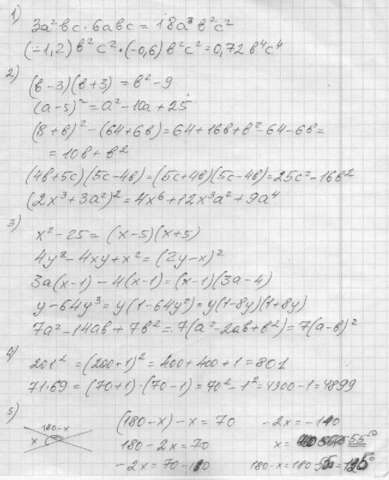 1)
3a²bc · 6abc = 18a³b²c²
(-1,2)b²c² · (-0,6)b²c² = 0,72b⁴c⁴
2)
(b-3)(b+3) = b²-9
(a-5)² = a²-10a+25
(8+b)² - (64+6b) = 64+16b+b²-64-6b =
= 10b + b²
(4b+5c)(5c-4b) = (5c+4b)(5c-4b) = 25c²-16b²
(2x³+3a²)² = 4x⁶+12x³a²+9a⁴
3)
x²-25 = (x-5)(x+5)
4y²-4xy+x² = (2y-x)²
3a(x-1) - 4(x-1) = (x-1)(3a-4)
y-64y³ = y(1-64y²) = y(1-8y)(1+8y)
7a²-14ab+7b² = 7(a²-2ab+b²) = 7(a-b)²
4)
201² = (200+1)² = 400+400+1 = 801
71·69 = (70+1)·(70-1) = 70²-1² = 4900-1 = 4899
5)
180-x
x
(180-x)-x = 70
-2x = -110
180-2x = 70
x = 55°
-2x = 70-180
180-x = 180 55 = 125°